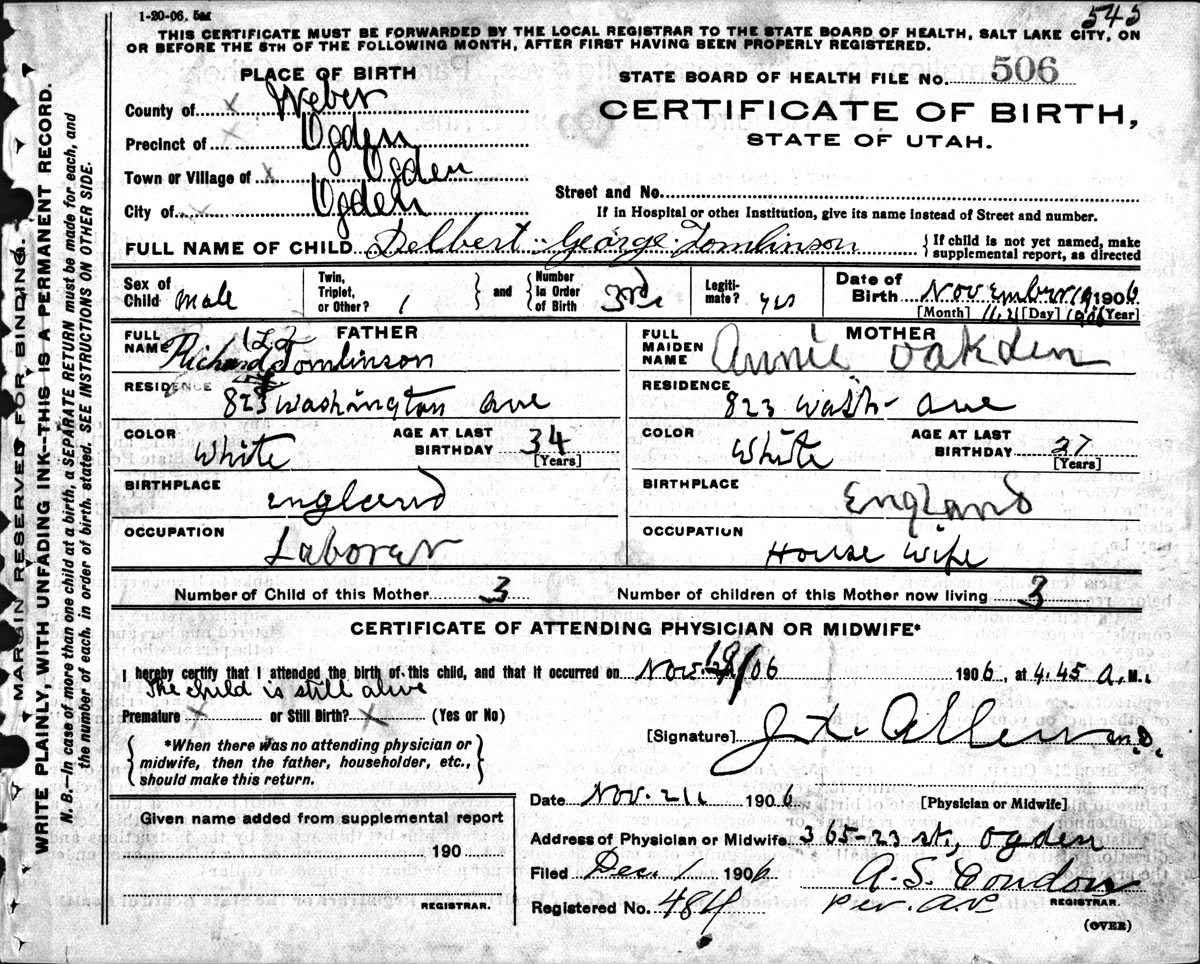 1-20-06. 5M
545
THIS CERTIFICATE MUST BE FORWARDED BY THE LOCAL REGISTRAR TO THE STATE BOARD OF HEALTH, SALT LAKE CITY, ON
OR BEFORE THE 5TH OF THE FOLLOWING MONTH, AFTER FIRST HAVING BEEN PROPERLY REGISTERED.
PLACE OF BIRTH
STATE BOARD OF HEALTH FILE No. 506
County of x Weber
CERTIFICATE OF BIRTH,
STATE OF UTAH.
Precinct of x Ogden
Town or Village of x Ogden
City of x Ogden
Street and No.
If in Hospital or other Institution, give its name instead of Street and number.
FULL NAME OF CHILD Delbert George Tomlinson
{If child is not yet named, make
supplemental report, as directed
Sex of Child male
Twin, Triplet, or Other? 1
} and {
Number in Order of Birth 3rd
Legiti-mate? yes
Date of Birth November 19 1906
[Month] [Day] [Year]
FATHER
FULL NAME Richard Tomlinson
RESIDENCE
823 Washington Ave
COLOR White
AGE AT LAST BIRTHDAY 34
[Years]
BIRTHPLACE
England
OCCUPATION
Laborar
MOTHER
FULL MAIDEN NAME Annie Oakden
RESIDENCE
823 Wash- Ave
COLOR White
AGE AT LAST BIRTHDAY 27
[Years]
BIRTHPLACE
England
OCCUPATION
House wife
Number of Child of this Mother 3
Number of children of this Mother now living 3
CERTIFICATE OF ATTENDING PHYSICIAN OR MIDWIFE*
I hereby certify that I attended the birth of this child, and that it occurred on Nov. 19/06 1906, at 4.45 A.M.
The child is still alive
Premature x or Still Birth? x (Yes or No)
{*When there was no attending physician or
midwife, then the father, householder, etc.,
should make this return.}
[Signature] Allen M.D.
[Physician or Midwife]
Date Nov. 21 1906
Given name added from supplemental report
190
REGISTRAR.
Address of Physician or Midwife 365-23 st, Ogden
Filed Dec. 1 1906 A.S. Condon
REGISTRAR.
Registered No. 484 per. A.P.
(OVER)
MARGIN RESERVED FOR BINDING.
WRITE PLAINLY, WITH UNFADING INK—THIS IS A PERMANENT RECORD.
N. B.—In case of more than one child at a birth, a SEPARATE RETURN must be made for each, and
the number of each, in order of birth, stated. SEE INSTRUCTIONS ON OTHER SIDE.